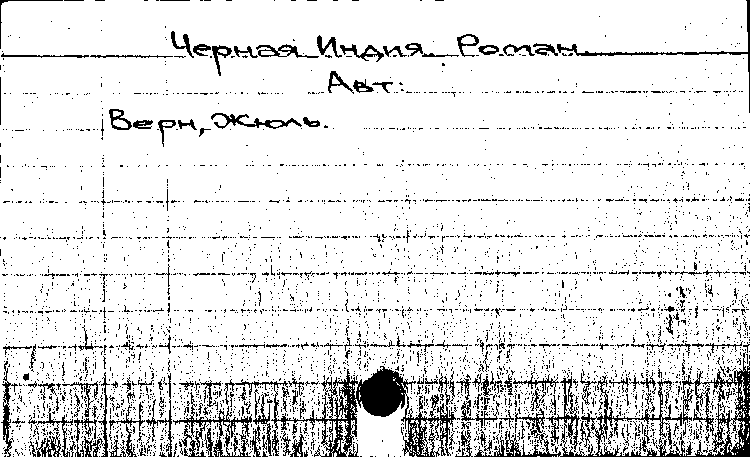 Черная Индия. Роман.
Авт:
Верн, Жюль.